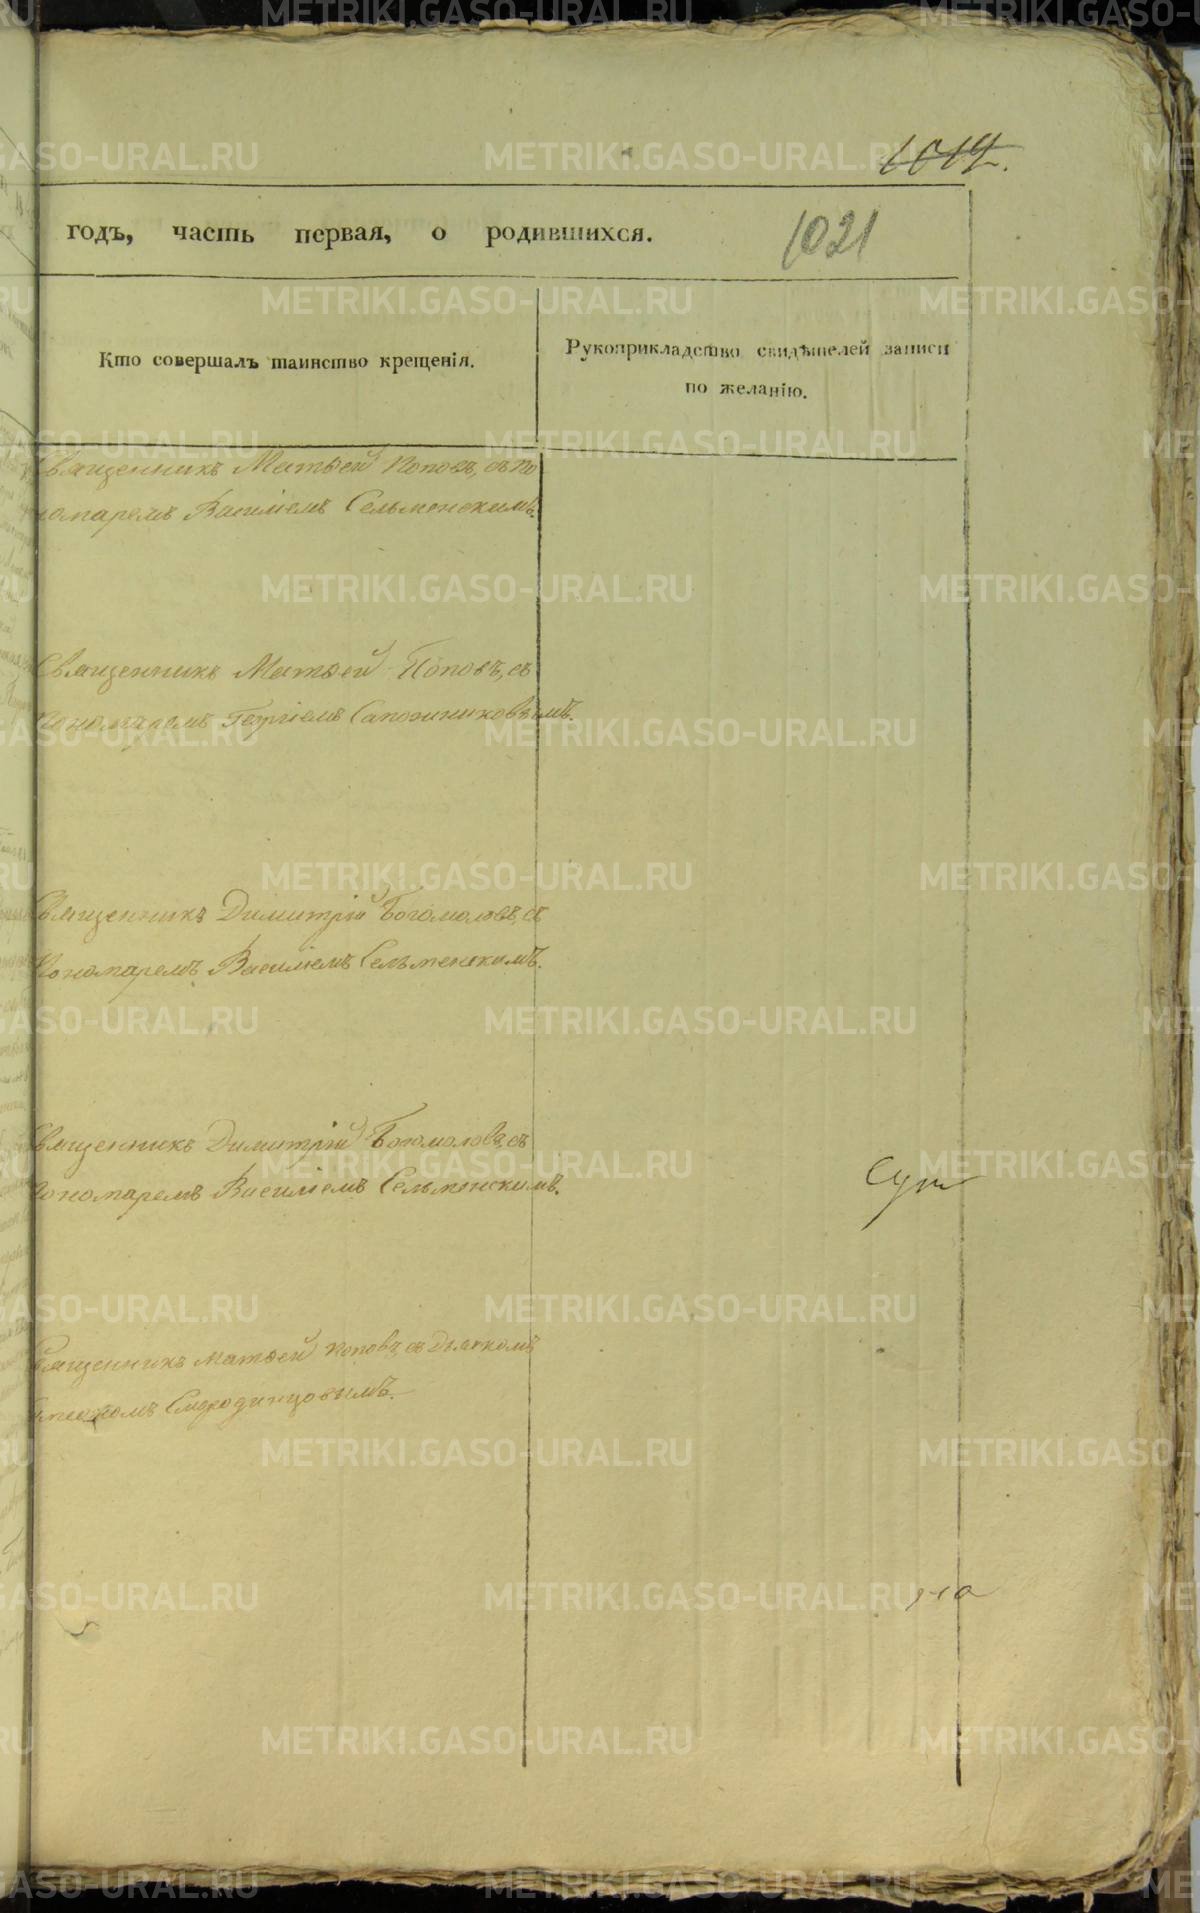 1019.
1021
годъ, часть первая, о родившихся.
Кто совершалъ таинство крещенія.
Рукоприкладство свидѣтелей записи
по желанію.
Священникъ Матѳей Поповъ, съ по
номаремъ Василіемъ Сельменскимъ.
Священникъ Матѳей Поповъ, съ
пономаремъ Георгіемъ Сапожниковымъ.
Священникъ Димитрій Богомоловъ, съ
пономаремъ Василіемъ Сельменскимъ.
Священникъ Димитрій Богомоловъ, съ
пономаремъ Василіемъ Сельменскимъ.
Священникъ Матѳей Поповъ, съ Дьячкомъ
Смородинцовымъ.
METRIKI.GASO-URAL.RU